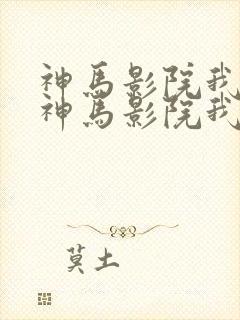 神馬影院我
神馬影院我
莫土